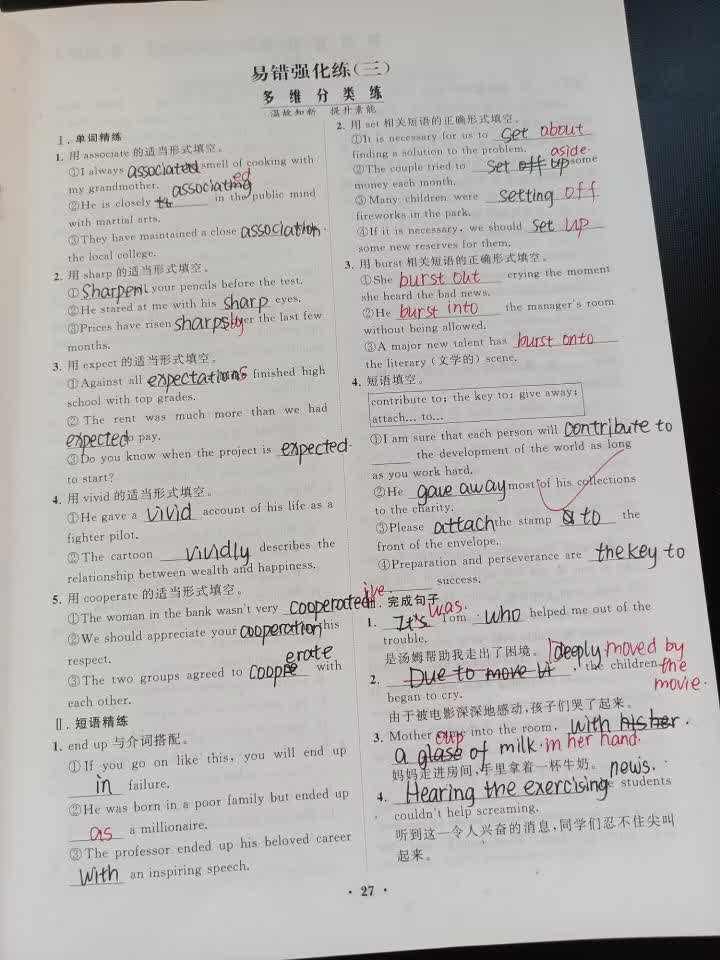 易错强化练(三)
多 维 分 类 练
温故知新 提升素能
Ⅰ. 单词精练
1. 用 associate 的适当形式填空。
①I always associated smell of cooking with
my grandmother.
②He is closely associated in the public mind
with martial arts.
③They have maintained a close association.
the local college.
2. 用 sharp 的适当形式填空。
① Sharpen your pencils before the test.
②He stared at me with his sharp eyes.
③Prices have risen sharply over the last few
months.
3. 用 expect 的适当形式填空。
①Against all expectations finished high
school with top grades.
② The rent was much more than we had
expected to pay.
③Do you know when the project is expected.
to start?
4. 用 vivid 的适当形式填空。
①He gave a vivid account of his life as a
fighter pilot.
②The cartoon vividly describes the
relationship between wealth and happiness.
5. 用 cooperate 的适当形式填空。
①The woman in the bank wasn't very cooperative.
②We should appreciate your cooperation this
respect.
③The two groups agreed to cooperate with
each other.
Ⅱ. 短语精练
1. end up 与介词搭配。
①If you go on like this, you will end up
in failure.
②He was born in a poor family but ended up
as a millionaire.
③The professor ended up his beloved career
with an inspiring speech.
2. 用 set 相关短语的正确形式填空。
①It is necessary for us to set about
finding a solution to the problem.
②The couple tried to set aside. some
money each month.
③Many children were setting off
fireworks in the park.
④If it is necessary, we should set up
some new reserves for them.
3. 用 burst 相关短语的正确形式填空。
①She burst out crying the moment
she heard the bad news.
②He burst into the manager's room
without being allowed.
③A major new talent has burst onto
the literary (文学的) scene.
4. 短语填空。
contribute to; the key to; give away;
attach... to...
①I am sure that each person will contribute to
the development of the world as long
as you work hard.
②He gave away most of his collections
to the charity.
③Please attach the stamp to the
front of the envelope.
④Preparation and perseverance are the key to
success.
Ⅲ. 完成句子
1. It was Tom who helped me out of the
trouble.
是汤姆帮助我走出了困境。
2. Due to move it deeply moved by the movie. , the children
began to cry.
由于被电影深深地感动,孩子们哭了起来。
3. Mother came into the room, with his her.
a glass cup of milk. in her hand.
妈妈走进房间,手里拿着一杯牛奶。
4. Hearing the exercising news. students
couldn't help screaming.
听到这一令人兴奋的消息,同学们忍不住尖叫
起来。
· 27 ·